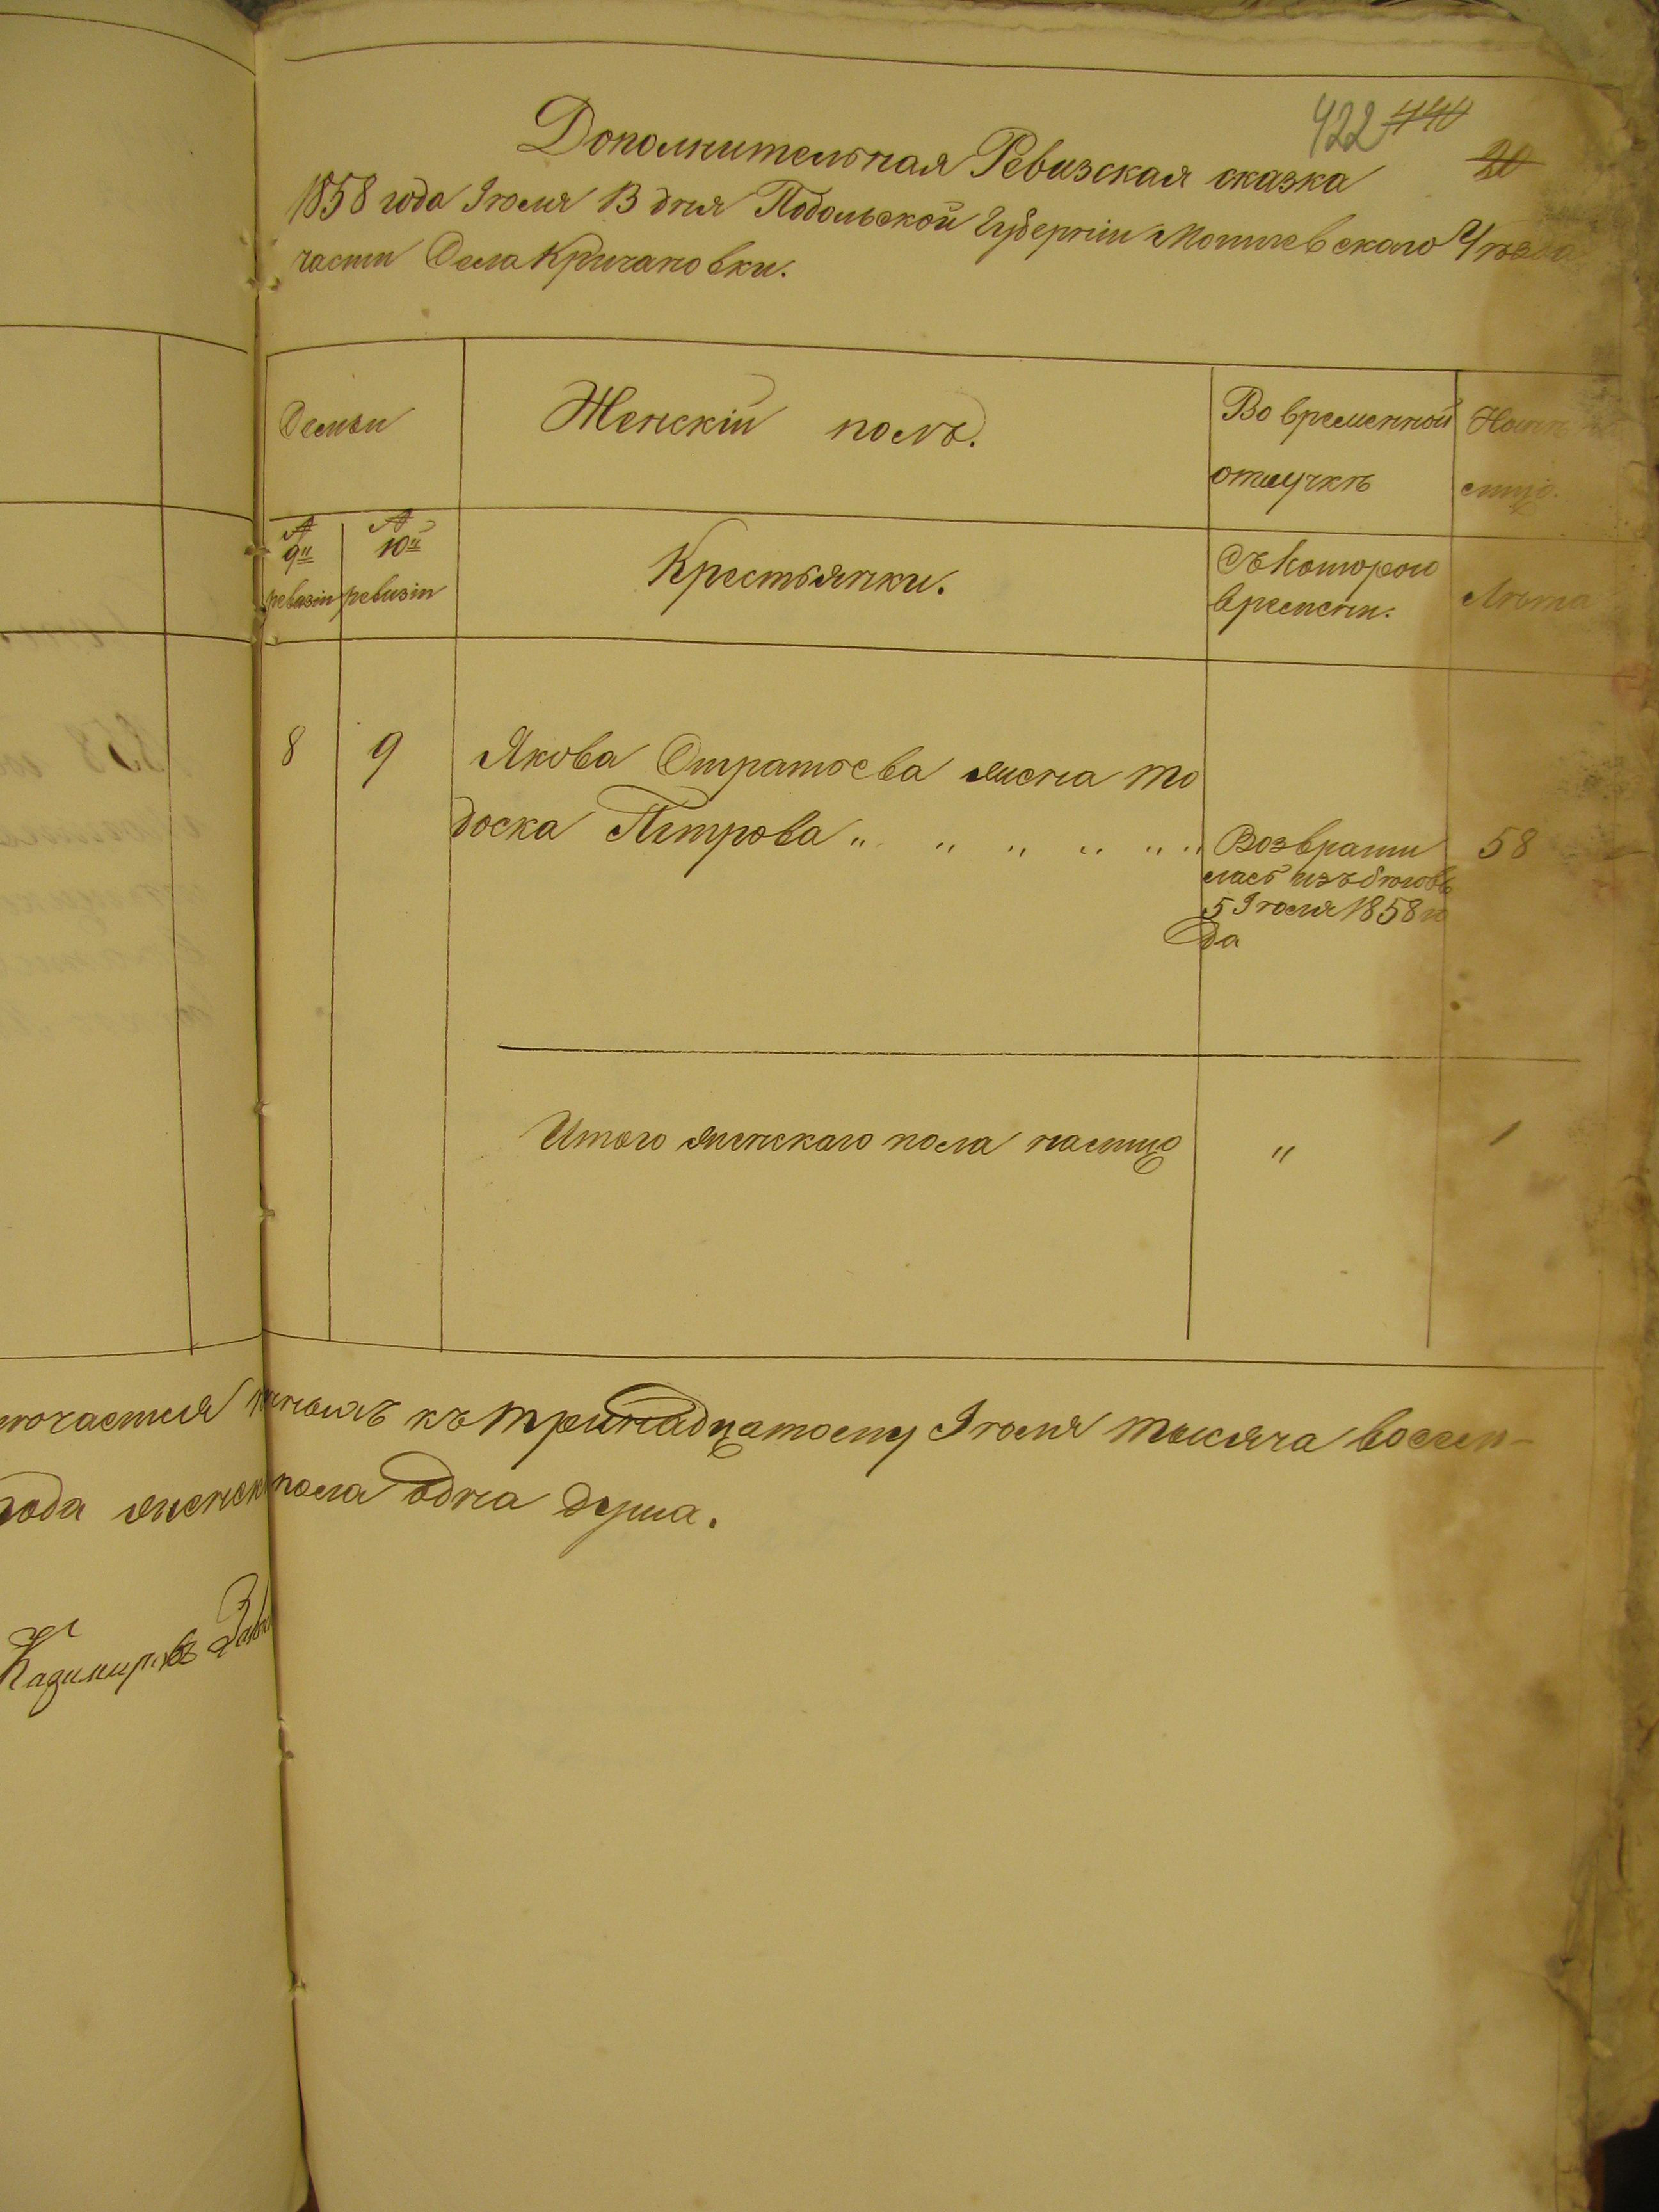 422 440
20
Дополнительная Ревизская сказка
1858 года Іюля 13 дня Подольской Губерніи Могилевскаго Уѣзда
части Села Кричановки.
Семьи
Женскій полъ.
Во временной
отлучкѣ
Налицо
№ 9й ревизіи
№ 10й ревизіи
Крестьянки.
Съ котораго
времени.
Лѣта
8 9 Якова Стратоева жена То
доска Петрова " " " " " "
Возврати
лась изъ бѣговъ
5 Іюля 1858 го
да
58
Итого женскаго пола налицо " 1
къ тринадцатому Іюля тысяча восем-
года женск пола одна душа.